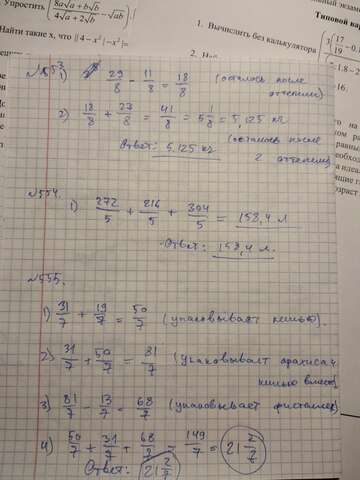 Упростить (8a√a + b√b / 4√a + 2√b − √ab) : (
Найти такие x, что ||4−x²|−x²|=
1. Вычислить без калькулятора
Типовой вар
№553.
1) 29/8 − 11/8 = 18/8 (осталось после
2) 18/8 + 23/8 = 41/8 = 5 1/8 = 5,125 кг
(осталось после
Ответ: 5,125 кг
2
№554.
1) 272/5 + 216/5 + 304/5 = 158,4 л
Ответ: 158,4 л.
№555.
1) 31/7 + 19/7 = 50/7 (упаковывает кешью).
2) 31/7 + 50/7 = 81/7 (упаковывает арахиса и
кешью вместе)
3) 81/7 − 13/7 = 68/7 (упаковывает фисташек)
4) 50/7 + 31/7 + 68/7 = 149/7 = 21 2/7
Ответ: 21 2/7